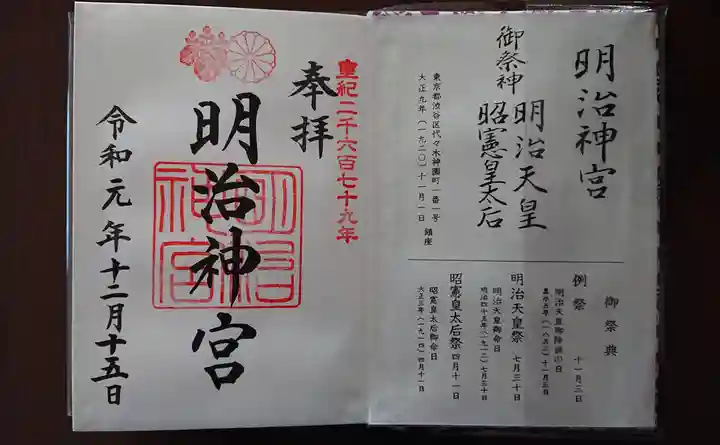 明治神宮
御祭神
明治天皇
昭憲皇太后
東京都渋谷区代々木神園町一番一号
大正九年（一九二〇）十一月一日 鎮座
御祭典
例祭 十一月三日
明治天皇御降誕の日
嘉永五年（一八五二）十一月三日
明治天皇祭 七月三十日
明治天皇御命日
明治四十五年（一九一二）七月三十日
昭憲皇太后祭 四月十一日
昭憲皇太后御命日
大正三年（一九一四）四月十一日
皇紀二千六百七十九年
奉拝
明治神宮
明治
神宮
令和元年十二月十五日